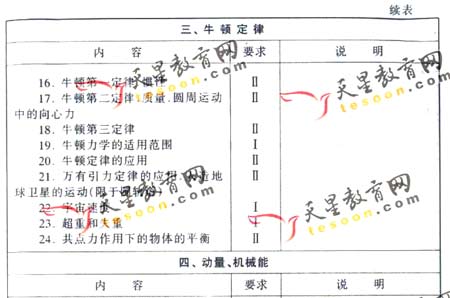 续表
三、牛顿定律
内 容 要求 说 明
16. 牛顿第一定律.惯性 Ⅱ
17. 牛顿第二定律.质量.圆周运动 Ⅱ
中的向心力
18. 牛顿第三定律 Ⅱ
19. 牛顿力学的适用范围 Ⅰ
20. 牛顿定律的应用 Ⅱ
21. 万有引力定律的应用.人造地 Ⅱ
球卫星的运动(限于圆轨道)
22. 宇宙速度 Ⅰ
23. 超重和失重 Ⅰ
24. 共点力作用下的物体的平衡 Ⅱ
四、动量、机械能
内 容 要求 说 明
天星教育网
tesoon.com
天星教育网
tesoon.com
天星教育网
tesoon.com
天星教育网
tesoon.com